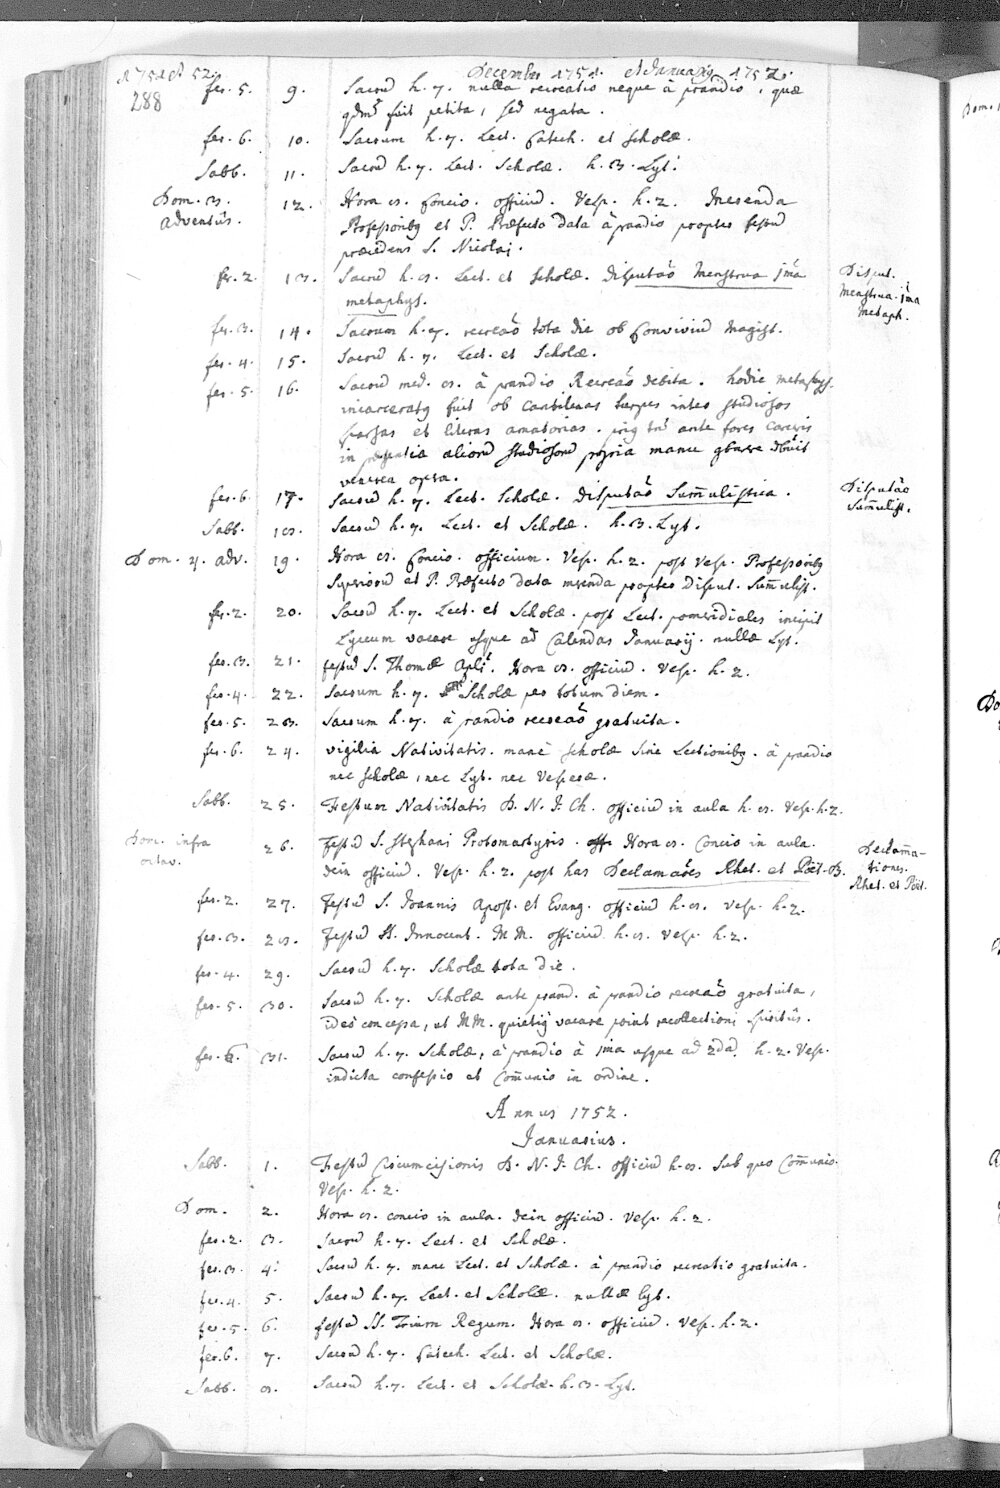 1751 et 52. Decembr 1751. et Januarij 1752.
288
fer. 5. 9. Sacrū h. 7. nulla recreatio neque à prandio, quae
qdm̄ fuit petita, sed negata.
fer. 6. 10. Sacrum h. 7. Lect. Catech. et Scholae.
Sabb. 11. Sacrū h. 7. Lect. Scholae. h. 3. Lyt.
Dom. 3. 12. Hora 8. Concio. officiū. Vesp. h. 2. Merenda
adventûs. Professoribꝫ et P. Praefecto data à prandio propter festū
praecedens S. Nicolai.
fer. 2. 13. Sacrū h. 8. Lect. et Scholae. Disputaō Menstrua 1ma Disput.
metaphys. Menstrua 1ma
Metaph.
fer. 3. 14. Sacrum h. 7. recreaō tota die ob Conviviū Magist.
fer. 4. 15. Sacrū h. 7. Lect. et Scholae.
fer. 5. 16. Sacrū med. 8. à prandio Recreaō debita. hodie metaphys.
incarceratꝫ fuit ob Cantilenas turpes inter studiosos
sparsas et literas amatorias. ante fores Carceris
in praesentia aliorū studiosorū propria manu debuit
opera.
fer. 6. 17. Sacrū h. 7. Lect. Scholae. Disputaō Summulistica. Disputaō
Summulist.
Sabb. 18. Sacrū h. 7. Lect. et Scholae. h. 3. Lyt.
Dom. 4. adv. 19. Hora 8. Concio. officium. Vesp. h. 2. post Vesp. Professoribꝫ
Superiorū et P. Praefecto data merenda propter Disput. Summulist.
fer. 2. 20. Sacrū h. 7. Lect. et Scholae. post Lect. pomeridiales incipit
Lyceum vacare usque ad Calendas Januarij. nullae Lyt.
fer. 3. 21. festū S. Thomae Apli. Hora 8. officiū. Vesp. h. 2.
fer. 4. 22. Sacrum h. 7. Scholae per totum diem.
fer. 5. 23. Sacrum h. 7. à prandio recreaō gratuita.
fer. 6. 24. vigilia Nativitatis. mane scholae sine Lectionibꝫ. à prandio
nec scholae, nec Lyt. nec Vesperae.
Sabb. 25. Festum Nativitatis D. N. J. Ch. officiū in aula h. 8. Vesp. h. 2.
Dom. infra 26. Festū S. Stephani Protomartyris. Hora 8. Concio in aula. Declama-
octav. dein officiū. Vesp. h. 2. post has Declamaōes Rhet. et Poët. B. tiones
Rhet. et Poët.
fer. 2. 27. Festū S. Joannis Apost. et Evang. officiū h. 8. Vesp. h. 2.
fer. 3. 28. Festū SS. Innocent. MM. officiū h. 8. Vesp. h. 2.
fer. 4. 29. Sacrū h. 7. Scholae tota die.
fer. 5. 30. Sacrū h. 7. Scholae ante prand. à prandio recreaō gratuita,
ideo concessa, ut MM. quietiꝫ vacare possint recollectioni spiritûs.
fer. 6. 31. Sacrū h. 7. Scholae, à prandio à 1ma usque ad 2da. h. 2. Vesp.
indicta confessio et Com̄unio in ordine.
Annus 1752.
Januarius.
Sabb. 1. Festū Circumcisionis D. N. J. Ch. officiū h. 8. Sub quo Com̄unio.
Vesp. h. 2.
Dom. 2. Hora 8. concio in aula. dein officiū. Vesp. h. 2.
fer. 2. 3. Sacrū h. 7. Lect. et Scholae.
fer. 3. 4. Sacrū h. 7. mane Lect. et Scholae. à prandio recreatio gratuita.
fer. 4. 5. Sacrū h. 7. Lect. et Scholae. nullae Lyt.
fer. 5. 6. festū SS. Trium Regum. Hora 8. officiū. Vesp. h. 2.
fer. 6. 7. Sacrū h. 7. Catech. Lect. et Scholae.
Sabb. 8. Sacrū h. 7. Lect. et Scholae. h. 3. Lyt.